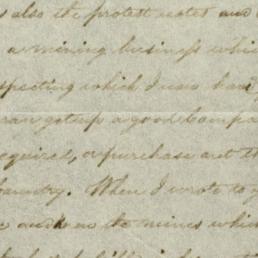 also the protest notes and
a mining business whic
specting which I was
can get up a good Compa
cquired, or purchase out th
ountry. When I wrote to y
the mines whic